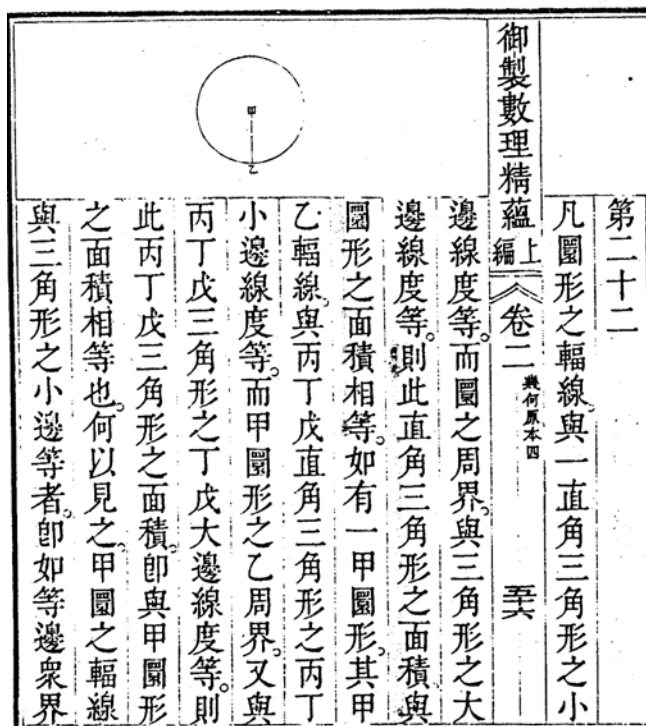 第二十二
凡圜形之輻線。與一直角三角形之小
御製數理精蘊 上編 卷二 幾何原本四 五十六
邊線度等。而圜之周界。與三角形之大
邊線度等。則此直角三角形之面積與
圜形之面積相等。如有一甲圜形。其甲
乙輻線。與丙丁戊直角三角形之丙丁
小邊線度等。而甲圜形之乙周界。又與
丙丁戊三角形之丁戊大邊線度等。則
此丙丁戊三角形之面積。卽與甲圜形
之面積相等也。何以見之。甲圜之輻線
與三角形之小邊等者。卽如等邊衆界
甲
乙